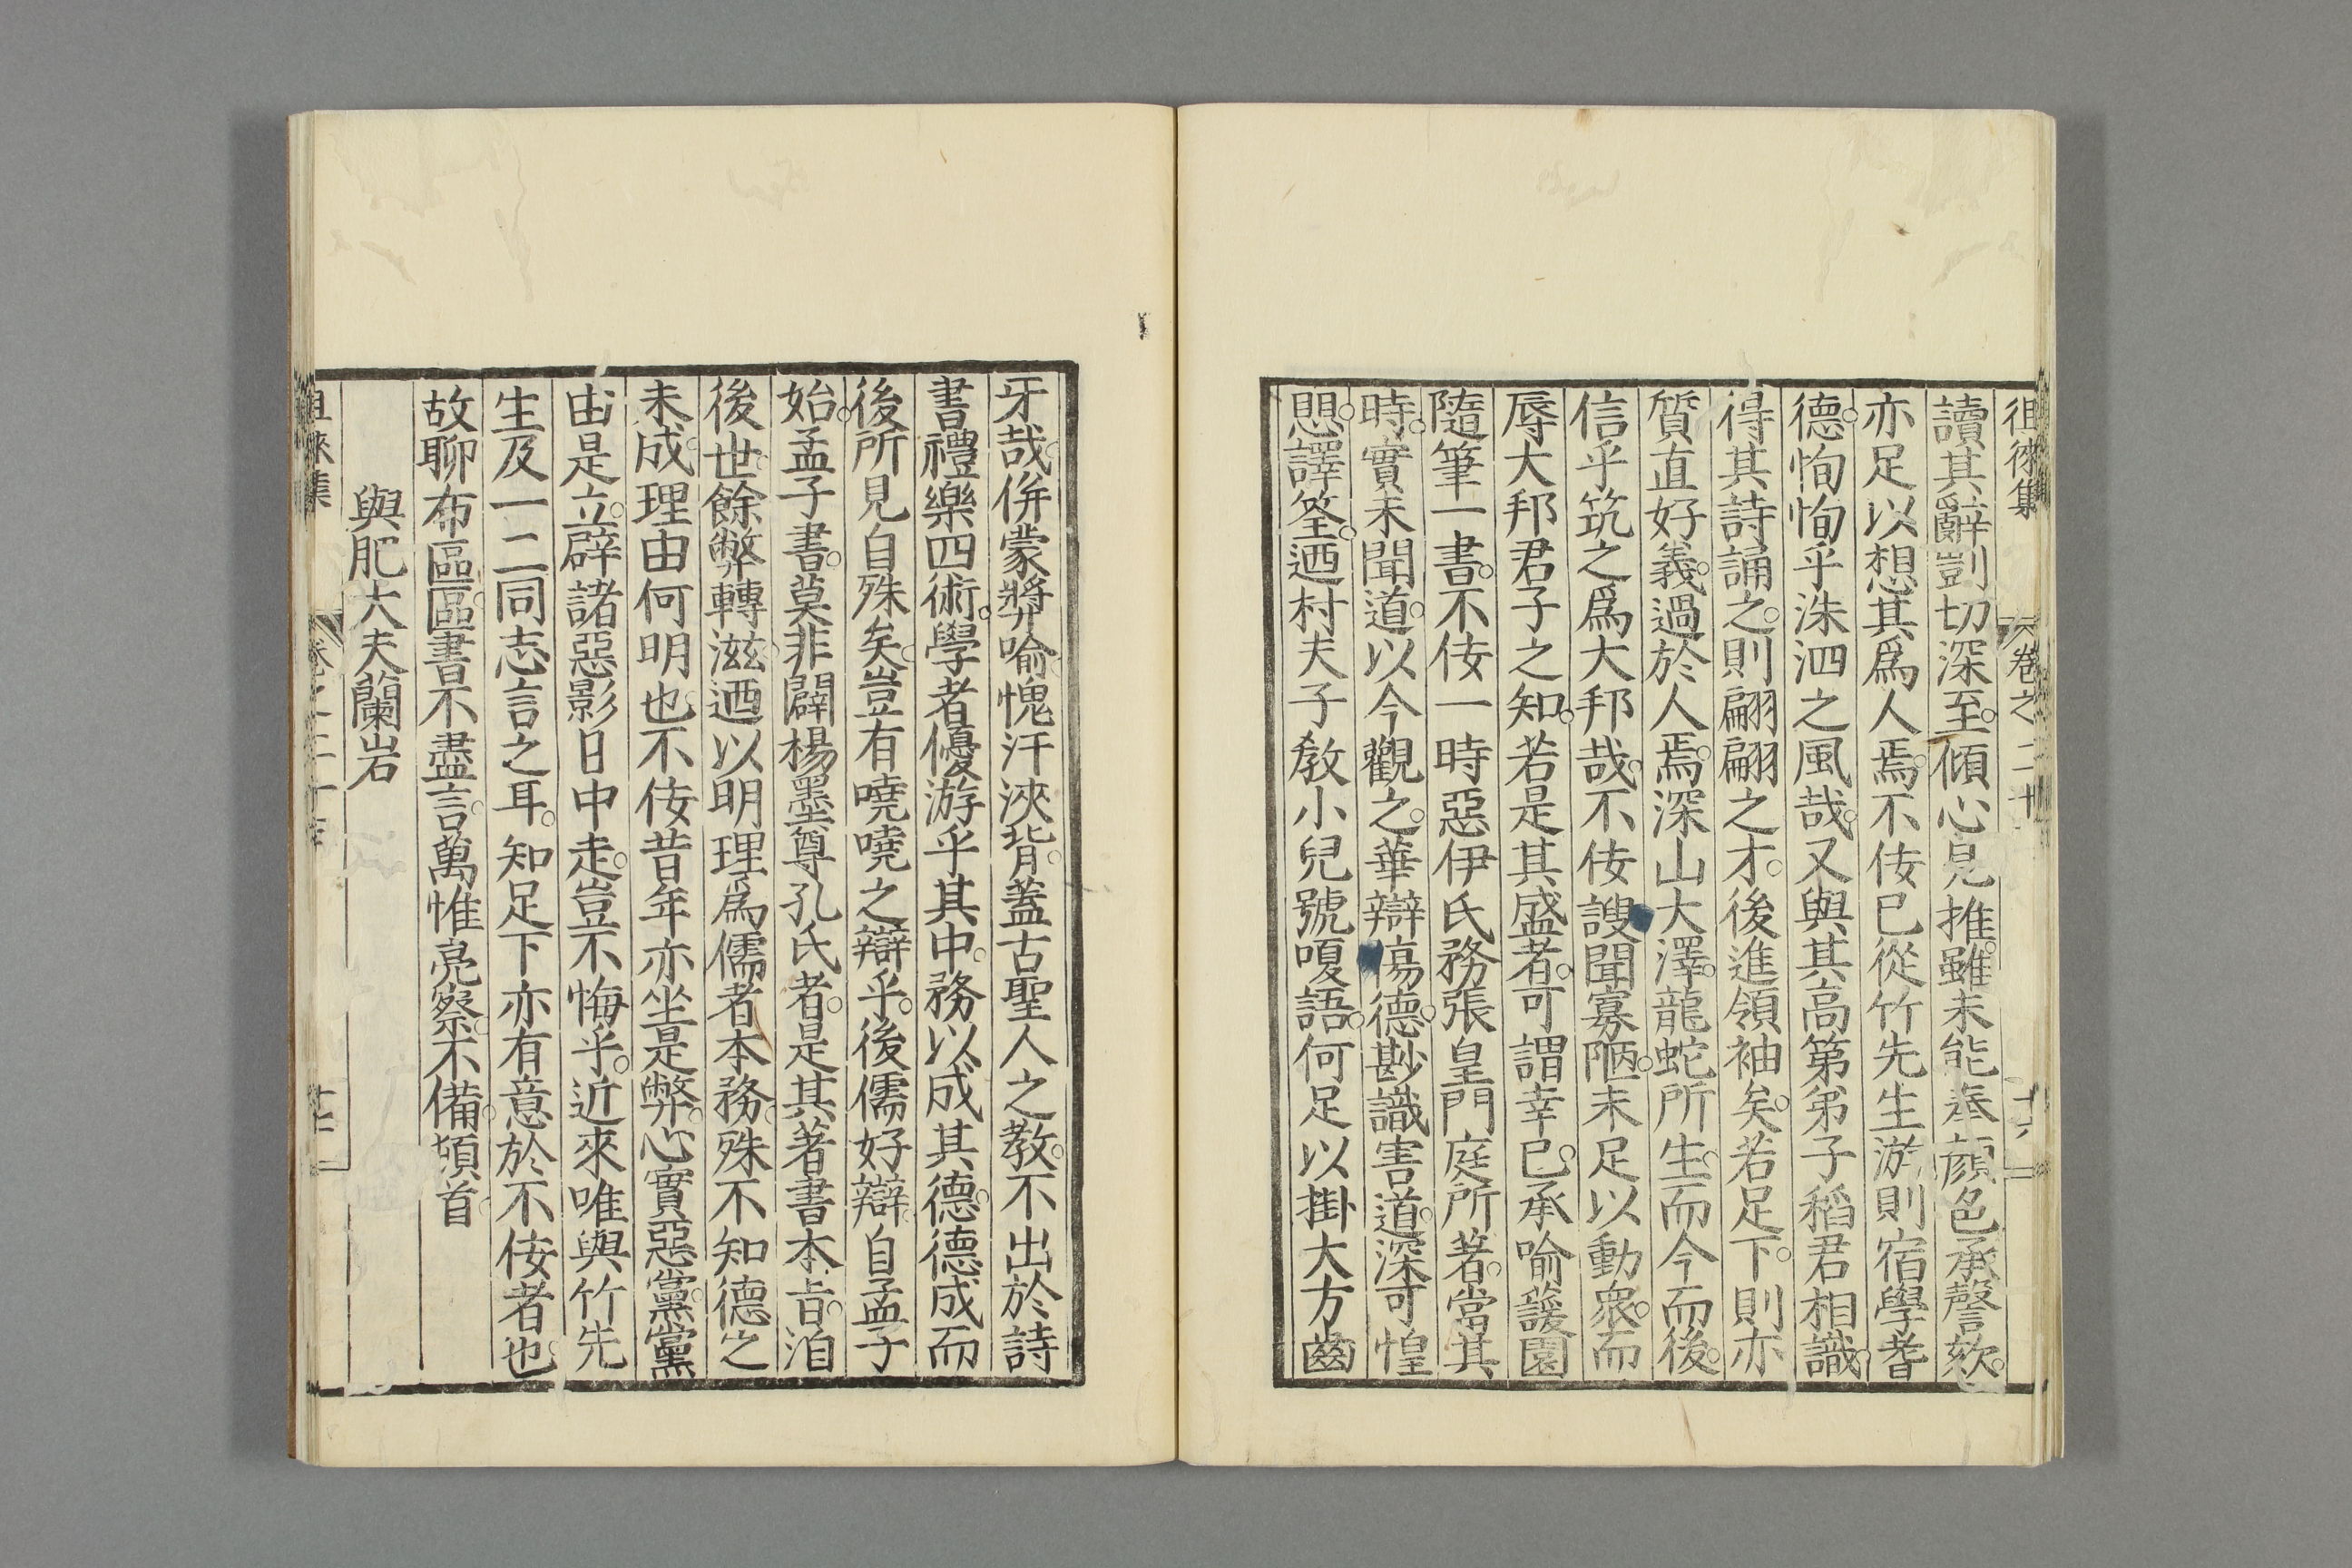 徂徠集 卷之二十 十六
讀其辭剴切深至。傾心見推。雖未能奉顏色承謦欬。
亦足以想其爲人焉。不佞已從竹先生游則宿學耆
德。恂恂乎洙泗之風哉。又與其高第弟子稻君相識。
得其詩誦之。則翩翩之才。後進領袖矣。若足下。則亦
質直好義。過於人焉。深山大澤。龍蛇所生。而今而後。
信乎筑之爲大邦哉。不佞謏聞寡陋。未足以動衆。而
辱大邦君子之知。若是其盛者。可謂幸已。承喻蘐園
隨筆一書。不佞一時惡伊氏務張皇門庭所著。當其
時。實未聞道。以今觀之。華辯傷德。尠識害道。深可惶
愳。譯筌。迺村夫子敎小兒號嗄語。何足以掛大方齒
牙哉。併蒙奬喻。愧汗浹背。蓋古聖人之敎。不出於詩
書禮樂四術。學者優游乎其中。務以成其德。德成而
後所見自殊矣。豈有嘵嘵之辯乎。後儒好辯。自孟子
始。孟子書。莫非闢楊墨尊孔氏者。是其著書本旨。洎
後世。餘弊轉滋。迺以明理爲儒者本務。殊不知德之
未成。理由何明也。不佞昔年亦坐是弊。心實惡黨。黨
由是立。辟諸惡影日中走。豈不悔乎。近來唯與竹先
生及一二同志言之耳。知足下亦有意於不佞者也。
故聊布區區。書不盡言。萬惟亮察。不備。頓首
與肥大夫蘭岩
徂徠集 卷之二十 十七